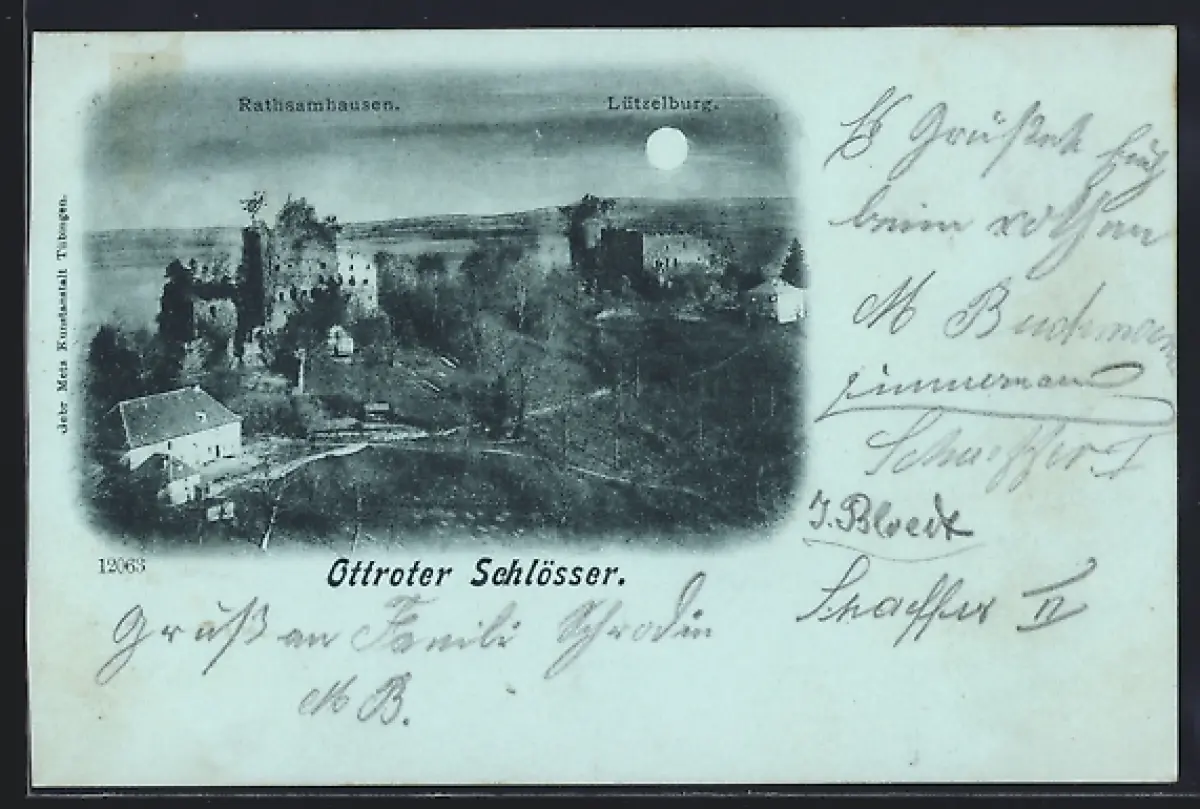 Rathsamhausen.
Lützelburg.
Gebr Metz Kunstanstalt Tübingen.
12063
Ottroter Schlösser.
Es Grüßet Euch
beim rothen
M Buchmann
Zimmerman
Schaeffer I
J. Bloedt
Schaeffer II
Gruß an Famili Schrodin
M B.